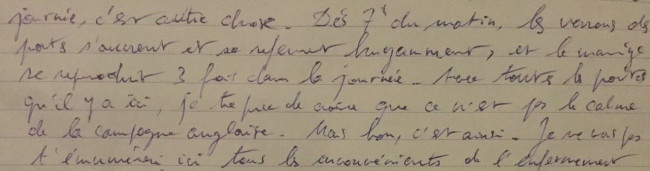 journée, c'est autre chose. Dès 7h du matin, les verrous des
portes s'ouvrent et se referment bruyamment, et le manège
se reproduit 3 fois dans la journée. Avec toutes les portes
qu'il y a ici, je te prie de croire que ce n'est pas le calme
de la campagne anglaise. Mais bon, c'est ainsi. Je ne vais pas
t'énumérer ici tous les inconvénients de l'enfermement